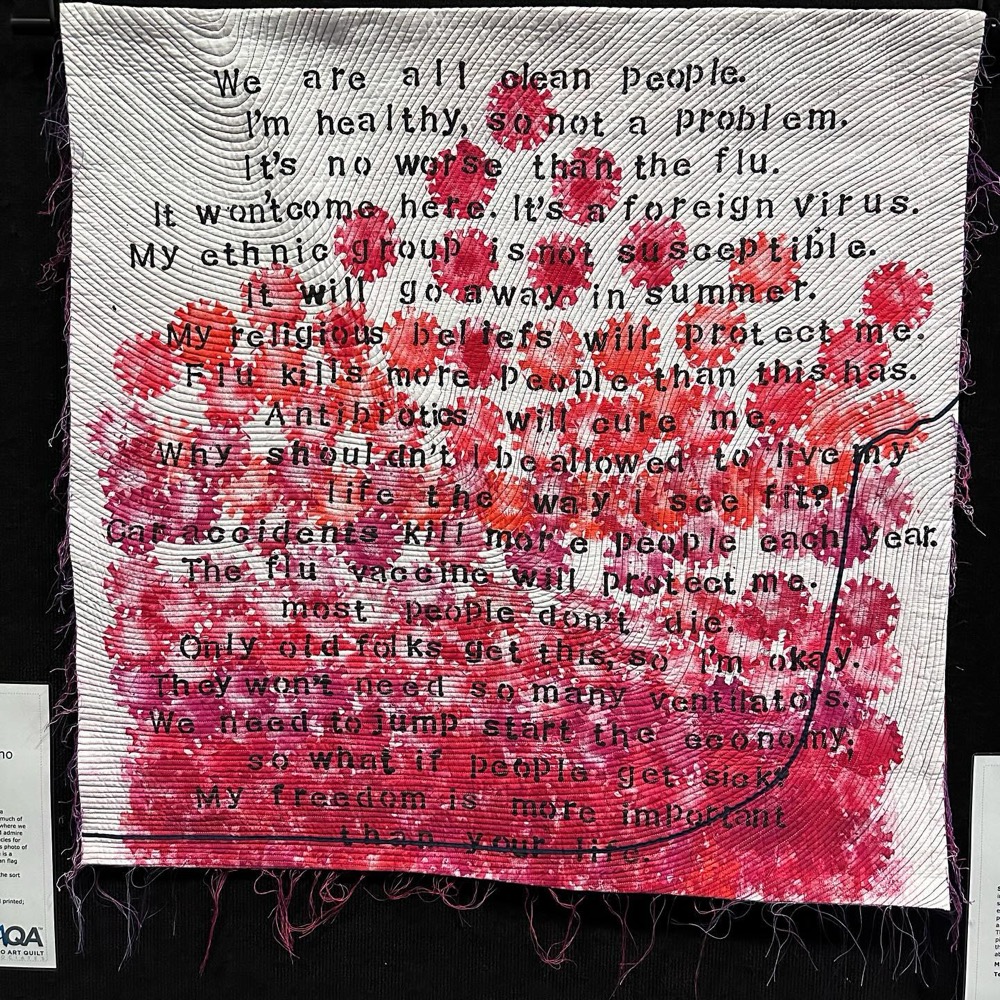 We are all clean people.
I'm healthy, so not a problem.
It's no worse than the flu.
It won't come here. It's a foreign virus.
My ethnic group is not susceptible.
It will go away in summer.
My religious beliefs will protect me.
Flu kills more people than this has.
Antibiotics will cure me.
Why shouldn't I be allowed to live my
life the way I see fit?
Car accidents kill more people each year.
The flu vaccine will protect me.
most people don't die.
Only old folks get this, so I'm okay.
They won't need so many ventilators.
We need to jump start the economy;
so what if people get sick?
My freedom is more important
than your life.
no
a
much of
where we
admire
cies for
s photo of
is a
an flag
the sort
printed;
AQA
O ART QUILT